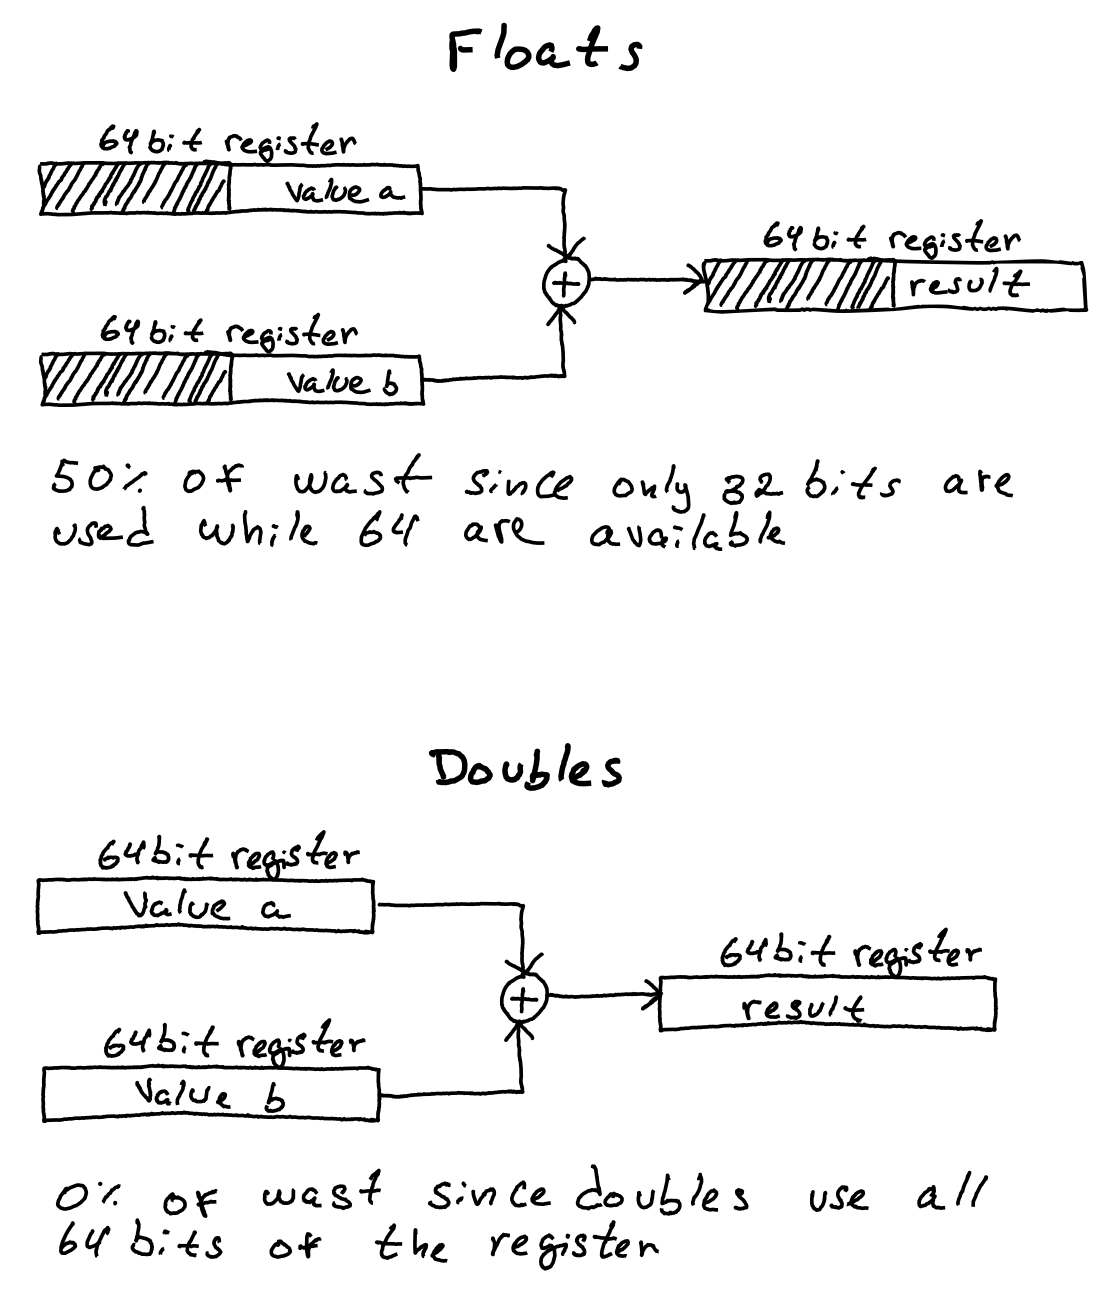 Floats
64 bit register
value a
64 bit register
result
64 bit register
value b
50% of wast since only 32 bits are
used while 64 are available
Doubles
64 bit register
Value a
64 bit register
result
64 bit register
Value b
0% of wast since doubles use all
64 bits of the register